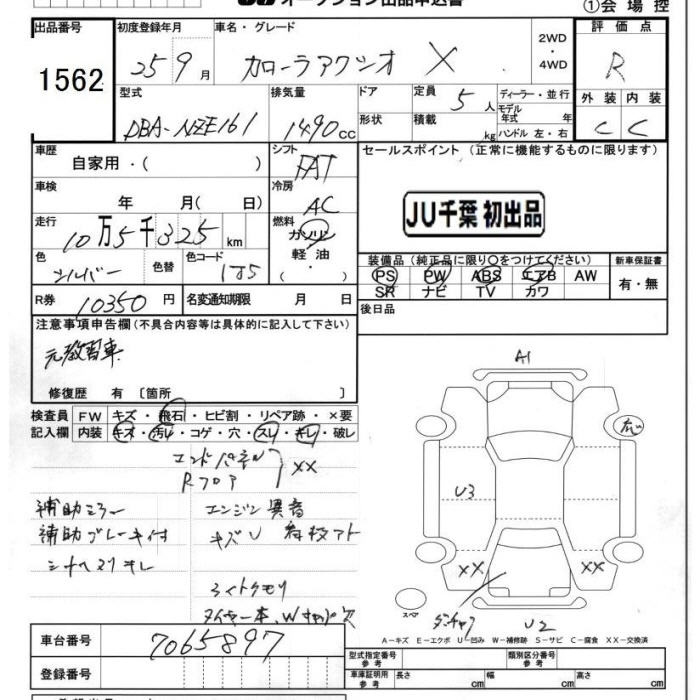 オークション出品申込書
①会場控
出品番号 初度登録年月 車名・グレード 2WD・4WD 評価点
1562 25 9月 カローラアクシオ X R
型式 排気量 ドア 定員 5人 ディーラー・並行 外装 内装
DBA-NZE161 1490cc 形状 積載 kg モデル年式 年 ハンドル 左・右 C C
車歴 シフト セールスポイント (正常に機能するものに限ります)
自家用・( ) FAT
車検 冷房
年 月( 日) AC
JU千葉 初出品
走行 燃料
10万5千325km ガソリン
軽油
色 色替 色コード 装備品(純正品に限り○をつけてください) 新車保証書
シルバー 1F5 PS PW ABS エアB AW 有・無
SR ナビ TV カワ
R券 10350円 名変通知期限 月 日 後日品
注意事項申告欄(不具合内容等は具体的に記入して下さい)
元教習車
修復歴 有〔箇所 〕
検査員 FW キズ・飛石・ヒビ割・リペア跡・×要
記入欄 内装 キズ・汚れ・コゲ・穴・スレ・キレ・破レ
エンドパネル
Rフロア XX
補助ミラー エンジン異音
補助ブレーキ付 キズU
シートスリキレ
ライトクモリ
A1
U3
XX XX
スペア
U2
A-キズ E-エクボ U-凹み W-補修跡 S-サビ C-腐食 XX-交換済
車台番号 7065897
登録番号
型式指定番号 参考 類別区分番号 参考
車庫証明用 参考 長さ cm 幅 cm 高さ cm